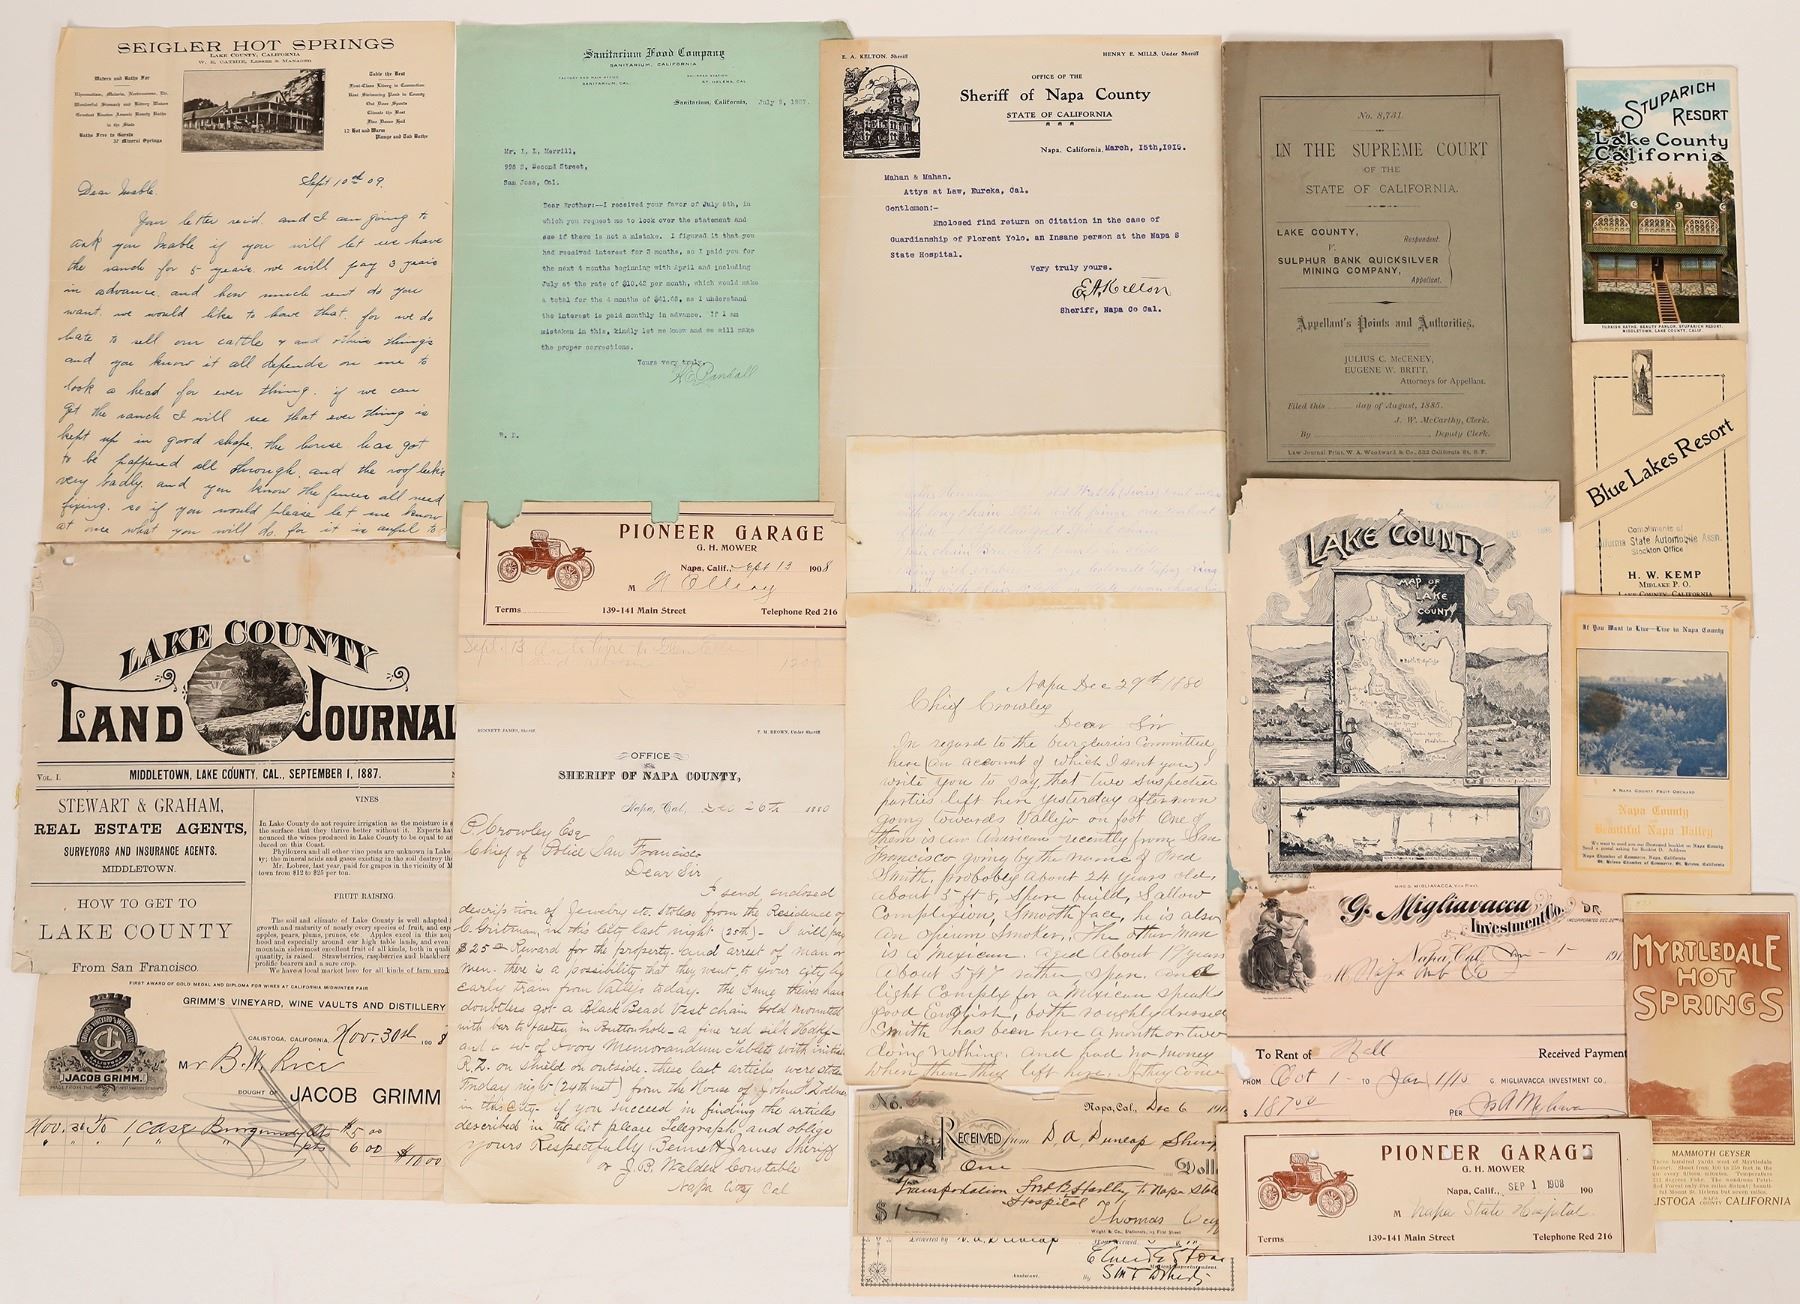 SEIGLER HOT SPRINGS
LAKE COUNTY, CALIFORNIA
W. E. CATHIE, LESSEE & MANAGER
Waters and Baths For
Rheumatism, Malaria, Neurasthenia, Etc.
Wonderful Stomach and Kidney Waters
Greatest Known Arsenic Beauty Baths
in the State
Baths Free to Guests
32 Mineral Springs
Table the Best
First-Class Livery in Connection
Best Swimming Pond in County
Out Door Sports
Climate the Best
Fine Dance Hall
12 Hot and Warm
Plunge and Tub Baths
Sept 10th 09.
Dear Mable.
Your letter rec'd. and I am going to
ask you Mable if you will let us have
the ranch for 5 years. we will pay 3 years
in advance. and how much rent do you
want. we would like to have that, for we do
hate to sell our cattle & and other things
and you know it all depends on me to
look a head for ever thing. if we can
get the ranch I will see that ever thing is
kept up in good shape, the house has got
to be pappered all through. and the roof leaks
very badly. and you know the fences all need
fixing. so if you would please let me know
at once what you will do. for it is awful to
Sanitarium Food Company
SANITARIUM, CALIFORNIA
FACTORY AND MAIN OFFICE
SANITARIUM, CAL.
ST. HELENA, CAL.
Sanitarium, California, July 9, 1907.
Mr. L. L. Merrill,
998 S. Second Street,
San Jose, Cal.
Dear Brother:—I received your favor of July 8th, in
which you request me to look over the statement and
see if there is not a mistake. I figured it that you
had received interest for 3 months, so I paid you for
the next 4 months beginning with April and including
July at the rate of $10.42 per month, which would make
a total for the 4 months of $41.68, as I understand
the interest is paid monthly in advance. If I am
mistaken in this, kindly let me know and we will make
the proper corrections.
Yours very truly,
E. A. KELTON, Sheriff
HENRY E. MILLS, Under Sheriff
OFFICE OF THE
Sheriff of Napa County
STATE OF CALIFORNIA
Napa, California, March, 15th, 1915.
Mahan & Mahan.
Attys at Law, Eureka, Cal.
Gentlemen:-
Enclosed find return on Citation in the case of
Guardianship of Florent Yolo, an Insane person at the Napa S
State Hospital.
Very truly yours.
E. A. Kelton
Sheriff, Napa Co Cal.
No. 8,731.
IN THE SUPREME COURT
OF THE
STATE OF CALIFORNIA.
LAKE COUNTY,
Respondent.
v.
SULPHUR BANK QUICKSILVER
MINING COMPANY,
Appellant.
Appellant's Points and Authorities.
JULIUS C. McCENEY,
EUGENE W. BRITT,
Attorneys for Appellant.
Filed this day of August, 1885.
J. W. McCarthy, Clerk.
By Deputy Clerk.
Law Journal Print, W. A. Woodward & Co., 532 California St., S.F.
STUPARICH
RESORT
Lake County
California
TURKISH BATHS, BEAUTY PARLOR, STUPARICH RESORT,
MIDDLETOWN, LAKE COUNTY, CALIF.
Blue Lakes Resort
Compliments of
California State Automobile Assn.
Stockton Office
H. W. KEMP
MIDLAKE P. O.
LAKE COUNTY, CALIFORNIA
PIONEER GARAGE
G. H. MOWER
Napa, Calif., Sept 13 1908
M
Terms
139-141 Main Street
Telephone Red 216
Sept. 13
LAKE COUNTY
LAND JOURNAL
VOL. I.
MIDDLETOWN, LAKE COUNTY, CAL., SEPTEMBER 1, 1887.
STEWART & GRAHAM,
REAL ESTATE AGENTS,
SURVEYORS AND INSURANCE AGENTS.
MIDDLETOWN.
HOW TO GET TO
LAKE COUNTY
From San Francisco.
VINES
In Lake County do not require irrigation as the moisture is s
the surface that they thrive better without it. Experts hav
nounced the wines produced in Lake County to be equal to a
duced on this Coast.
Phylloxera and all other vine pests are unknown in Lake
ty; the mineral acids and gases existing in the soil destroy the
Mr. Lobree, last year, paid for grapes in the vicinity of M
town from $12 to $25 per ton.
FRUIT RAISING.
The soil and climate of Lake County is well adapted
growth and maturity of nearly every species of fruit, and esp
apples, pears, plums, prunes, etc. Apples excel in this neig
hood and especially around our high table lands, and even
mountain sides most excellent fruit of all kinds, both in qualit
quantity, is raised. Strawberries, raspberries and blackberr
prolific bearers and a sure crop.
We have a local market here for all kinds of farm prod
LAKE COUNTY
MAP OF
LAKE
COUNTY
If You Want to Live—Live in Napa County
A NAPA COUNTY FRUIT ORCHARD
Napa County
Beautiful Napa Valley
Napa Chamber of Commerce, Napa, California
St. Helena Chamber of Commerce, St. Helena, California
BENNETT JAMES, Sheriff
T. M. BROWN, Under Sheriff
OFFICE
SHERIFF OF NAPA COUNTY,
Napa, Cal, Dec 26th 1880
P. Crowley Esq
Chief of Police San Francisco
Dear Sir
I send enclosed
description of Jewelry etc. Stolen from the Residence of
in this City last night (25th) - I will pay
$25 00 Reward for the property and arrest of man or
men. there is a possibility that they went to your city by
early train from Vallejo today. the Same thieves have
doubtless got a Black Bead Vest chain Gold mounted
with bar to fasten in Buttonhole - a fine red silk Hdkf -
and a set of Ivory Memorandum Tablets with initials
R. Z. on shield on outside. these last articles were stolen
Friday night (24th inst) from the House of John
in this City. if you succeed in finding the articles
described in the list please Telegraph and oblige
yours Respectfully Bennett James Sheriff
or J. B. Walden Constable
Napa City Cal
Napa Dec 29th 1880
Chief Crowley
Dear Sir
In regard to the burglaries Committed
here (on account of which I sent you) I
write you to say, that two suspected
parties left here yesterday afternoon
going towards Vallejo on foot One of
them is an American recently from San
Francisco going by the name of Fred
Smith, probably about 24 years old,
about 5 ft 8, Spare build, Sallow
Complexion, Smooth face, he is also
an opium smoker. The other man
is a Mexican. aged about 19 years
about 5 ft 7 rather Spare and
light Complex for a Mexican speaks
good English, both roughly dressed
Smith has been here a month or two
doing nothing. and had no money
when then they left here. if they come
FIRST AWARD OF GOLD MEDAL AND DIPLOMA FOR WINES AT CALIFORNIA MIDWINTER FAIR
GRIMM'S VINEYARD, WINE VAULTS AND DISTILLERY
CALISTOGA, CALIFORNIA, Nov. 30th 1908
Mr B. W. Rice
BOUGHT OF JACOB GRIMM
JACOB GRIMM.
Nov. 30 To 1 case Burgundy qts $5.00
" " " pts 6.00 $
G. Migliavacca
Investment Co.
DR.
Napa, Cal, Jan - 1 - 191
To Rent of Hall
Received Payment
FROM Oct 1 - TO Jan 1/15
G. MIGLIAVACCA INVESTMENT CO.,
$ 187.00
PER
No.
Napa, Cal., Dec 6 191
RECEIVED from D. A. Dunlap Sheriff
One Dolls
Transportation Ford B. Hartley to Napa State
Hospital
$ 1
Thomas
Delivered by D. A. Dunlap
Assistant.
By
MYRTLEDALE
HOT
SPRINGS
MAMMOTH GEYSER
CALISTOGA NAPA COUNTY CALIFORNIA
PIONEER GARAGE
G. H. MOWER
Napa, Calif., SEP 1 1908 190
M Napa State Hospital.
Terms
139-141 Main Street
Telephone Red 216